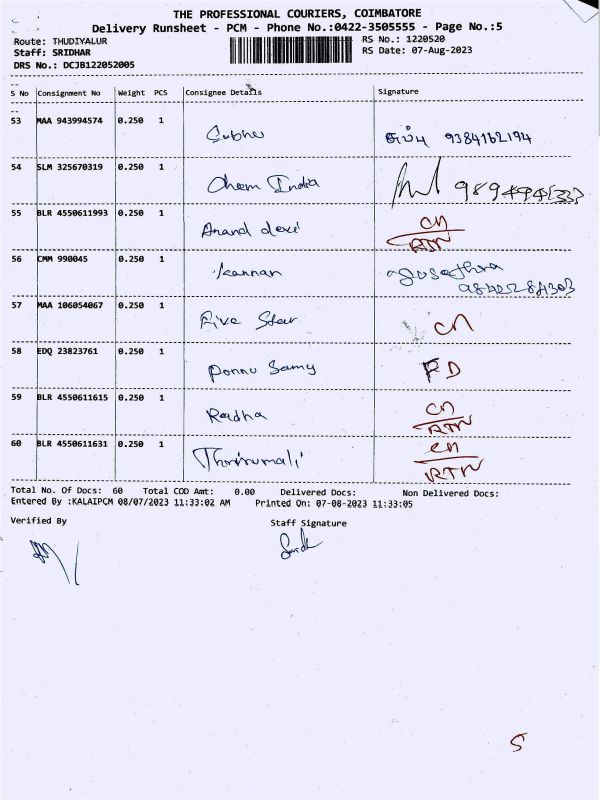 THE PROFESSIONAL COURIERS, COIMBATORE
Delivery Runsheet - PCM - Phone No.:0422-3505555 - Page No.:5
Route: THUDIYALUR RS No.: 1220520
Staff: SRIDHAR RS Date: 07-Aug-2023
DRS No.: DCJB122052005
S No Consignment No Weight PCS Consignee Details Signature
53 MAA 943994574 0.250 1 Subha சுப்பு 9384162194
54 SLM 325670319 0.250 1 Chem India
55 BLR 4550611993 0.250 1 Anand devi CN
RTN
56 CMM 990045 0.250 1 Kannan
57 MAA 106054067 0.250 1 Five Star CN
58 EDQ 23823761 0.250 1 Ponnu Samy RD
59 BLR 4550611615 0.250 1 Radha CN
RTN
60 BLR 4550611631 0.250 1 CN
RTN
Total No. Of Docs: 60 Total COD Amt: 0.00 Delivered Docs: Non Delivered Docs:
Entered By :KALAIPCM 08/07/2023 11:33:02 AM Printed On: 07-08-2023 11:33:05
Verified By Staff Signature
5